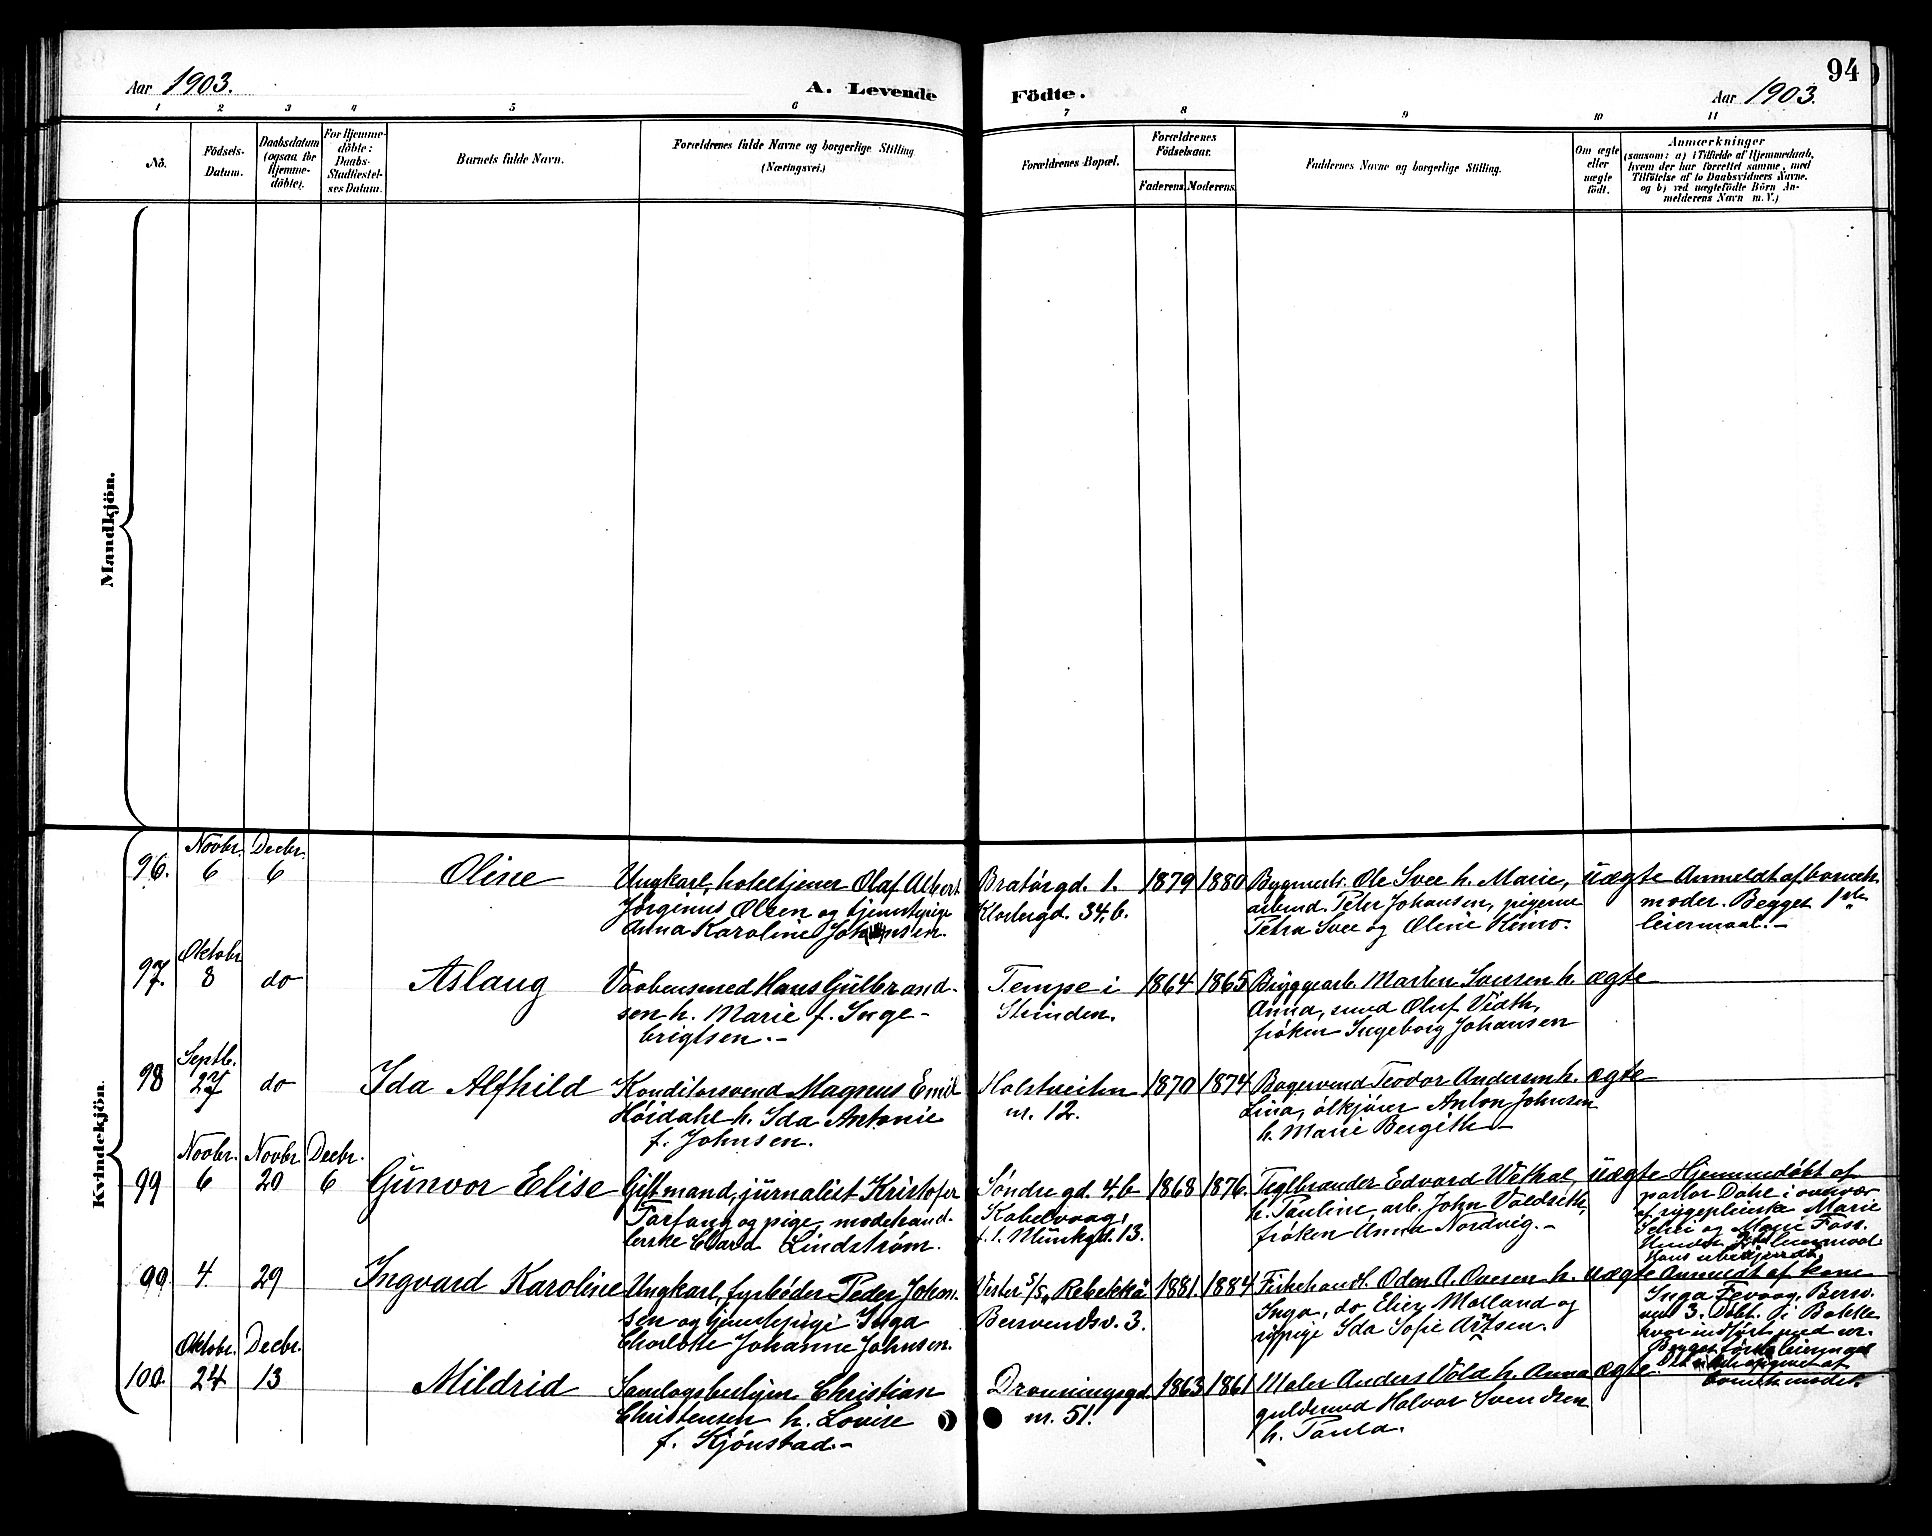 94
Aar 1903.
A. Levende
Födte.
Aar 1903.
1 2 3 4 5 6 7 8 9 10 11
No.
Födsels-
Datum.
Daabsdatum
(ogsaa for
Hjemme-
döbte).
For Hjemme-
döbte:
Daabs-
Stadfæstel-
ses Datum.
Barnets fulde Navn.
Forældrenes fulde Navne og borgerlige Stilling
(Næringsvei.)
Forældrenes Bopæl.
Forældrenes
Födselsaar.
Faderens. Moderens.
Faddernes Navne og borgerlige Stilling.
Om ægte
eller
uægte
födt.
Anmærkninger
(saasom: a) i Tilfælde af Hjemmedaab,
hvem der har forrettet samme, med
Tilföielse af to Daabsvidners Navne.
og b) ved uægtefödte Börn An-
melderens Navn m. V.)
Mandkjön.
Kvindekjön.
Novbr. Decbr.
96. 6 6 Oline
Ungkarl, hoteltjener Olaf Albert
Jørgenus Olsen og tjenestepige
Anna Karoline Johansen.
Bratørgd. 1.
Klostergd. 34.b.
1879 1880
Bygmestr. Ole Svee h. Marie,
arbmd. Peter Johansen, pigerne
Petra Svee og Oline Kimo.
uægte
Anmeldt af barnets
moder. Begges 1ste
leiermaal.-
Oktobr.
97. 8 do Aslaug
Vaabensmed Hans Gulbrand-
sen h. Marie f. Inge-
brigtsen.-
Tempe i
Strinden.
1864 1865
Bryggearb. Morten Iversen h.
Anna, smed Oluf Vidth,
frøken Ingeborg Johansen
ægte
Septb.
98 27 do Ida Alfhild
Konditorsvend Magnus Emil
Høidahl h. Ida Antonie
f. Johnsen.
Holstveiten
nr. 12.
1870 1874
Bagersvend Teodor Andersen h.
Lina, ølkjører Anton Johnsen
h. Marie Bergith
ægte
Novbr. Novbr. Decbr.
99 6 20 6 Gunvor Elise
Gift mand, jurnalist Kristofer
Torfang og pige, modehand-
lerske Clara Lindstrøm.
Søndre gd. 4.b
Kabelvaag,
f. t. Munkgd. 13.
1868 1876.
Teglbrænder Edvard Withal,
h. Pauline, arb. John Voldseth,
frøken Anna Nordvig.-
uægte
Hjemmedøbt af
pastor Dahl i overvær
af sygepleierske Marie
og Marie Foss.
Hendes leiermaal
Hans ubekjendt.
99. 4. 29 Ingvard Karoline
Ungkarl, fyrbøder Peder Johan-
sen og tjenestepige Inga
Charlotte Johanne Johnsen.
Vester S/S "Rebekka"
Bersvendsv. 3.
1881. 1884
Fiskehandl. Oden A. Ovesen h.
Inga, do. Elier Molland og
sypige Ida Sofie
uægte
Anmeldt af kone
Inga Bersv.
3. Døbt i Bakke
hvor indført med nr.
Begges første leiermaal
opgivet af
barnets moder.
Oktobr. Decbr.
100. 24 13 Mildrid
Samlagsbestyrer Christian
Christensen h. Lovise
f. Kjønstad.-
Dronningsgd.
nr. 51.
1863 1861
Maler Anders Vold h. Anna
guldsmed Halvor Svendsen
h. Paula.
ægte.